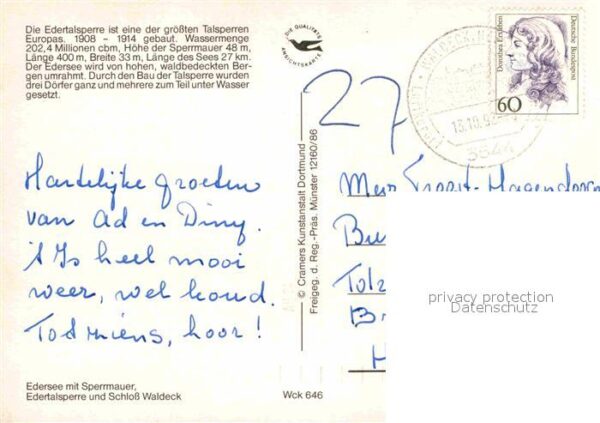 Die Edertalsperre ist eine der größten Talsperren
Europas. 1908 - 1914 gebaut. Wassermenge
202,4 Millionen cbm, Höhe der Sperrmauer 48 m,
Länge 400 m, Breite 33 m, Länge des Sees 27 km.
Der Edersee wird von hohen, waldbedeckten Ber-
gen umrahmt. Durch den Bau der Talsperre wurden
drei Dörfer ganz und mehrere zum Teil unter Wasser
gesetzt.
DIE QUALITÄTS
ANSICHTSKARTE
Hartelijke groeten
van Ad en Diny.
't Is heel mooi
weer, wel koud.
Tot ziens, hoor!
Edersee mit Sperrmauer,
Edertalsperre und Schloß Waldeck
Wck 646
© Cramers Kunstanstalt Dortmund
Freigeg. d. Reg.-Präs. Münster 12160/86
27
WALDECK
3544
Dorothea Erxleben
Deutsche Bundespost
60
Bu
Tolz
B
H
privacy protection
Datenschutz